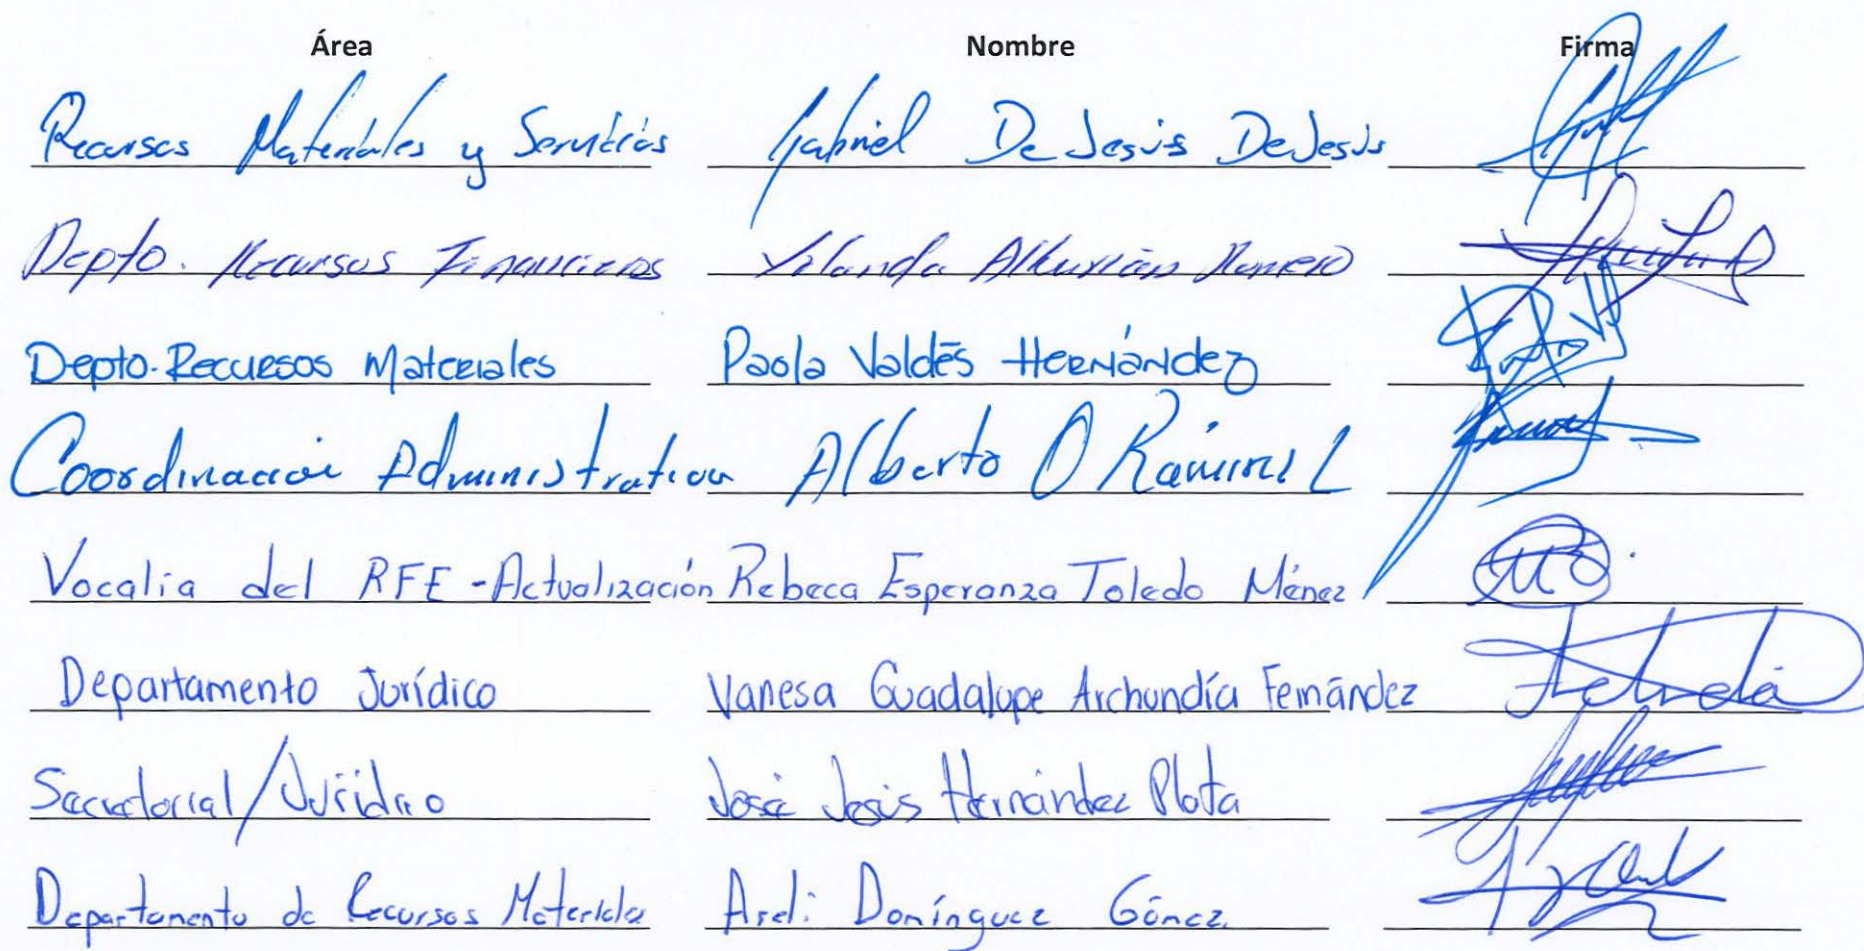 Área Nombre Firma
Recursos Materiales y Servicios Gabriel De Jesús De Jesús
Depto. Recursos Financieros Yolanda Romero
Depto. Recursos Materiales Paola Valdés Hernández
Coordinación Administrativa Alberto O Ramirez L
Vocalia del RFE - Actualización Rebeca Esperanza Toledo Ménez
Departamento Jurídico Vanesa Guadalupe Archundía Fernández
Secretarial/Jurídico José Jesús Hernández Plata
Departamento de Recursos Materiales Areli Domínguez Gómez